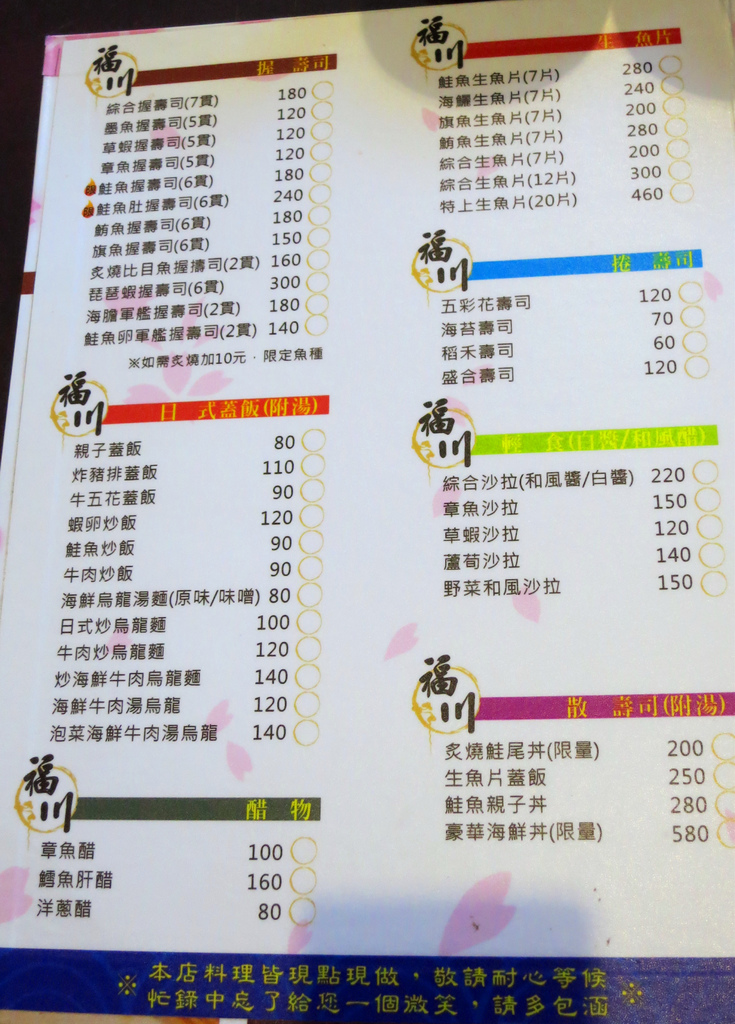 福川
握 壽司
綜合握壽司(7貫) 180
墨魚握壽司(5貫) 120
草蝦握壽司(5貫) 120
章魚握壽司(5貫) 120
鮭魚握壽司(6貫) 180
鮭魚肚握壽司(6貫) 240
鮪魚握壽司(6貫) 180
旗魚握壽司(6貫) 150
炙燒比目魚握擣司(2貫) 160
琵琶蝦握壽司(6貫) 300
海膽軍艦握壽司(2貫) 180
鮭魚卵軍艦握壽司(2貫) 140
※如需炙燒加10元，限定魚種
福川
日 式蓋飯(附湯)
親子蓋飯 80
炸豬排蓋飯 110
牛五花蓋飯 90
蝦卵炒飯 120
鮭魚炒飯 90
牛肉炒飯 90
海鮮烏龍湯麵(原味/味噌) 80
日式炒烏龍麵 100
牛肉炒烏龍麵 120
炒海鮮牛肉烏龍麵 140
海鮮牛肉湯烏龍 120
泡菜海鮮牛肉湯烏龍 140
福川
醋 物
章魚醋 100
鱈魚肝醋 160
洋蔥醋 80
福川
生 魚片
鮭魚生魚片(7片) 280
海鱺生魚片(7片) 240
旗魚生魚片(7片) 200
鮪魚生魚片(7片) 280
綜合生魚片(7片) 200
綜合生魚片(12片) 300
特上生魚片(20片) 460
福川
捲 壽司
五彩花壽司 120
海苔壽司 70
稻禾壽司 60
盛合壽司 120
福川
輕 食(白醬/和風醋)
綜合沙拉(和風醬/白醬) 220
章魚沙拉 150
草蝦沙拉 120
蘆筍沙拉 140
野菜和風沙拉 150
福川
散 壽司(附湯)
炙燒鮭尾丼(限量) 200
生魚片蓋飯 250
鮭魚親子丼 280
豪華海鮮丼(限量) 580
※ 本店料理皆現點現做，敬請耐心等候 ※
忙錄中忘了給您一個微笑，請多包涵